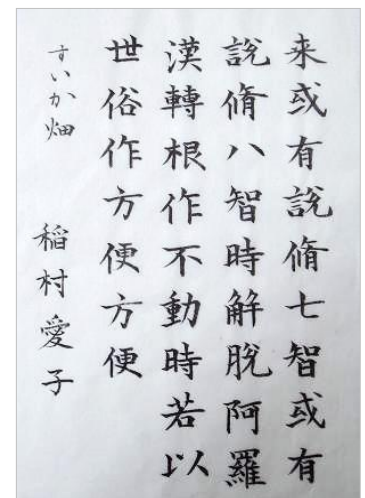 来或有説脩七智或有
説脩八智時解脱阿羅
漢轉根作不動時若以
世俗作方便方便
すいか畑
稲村愛子